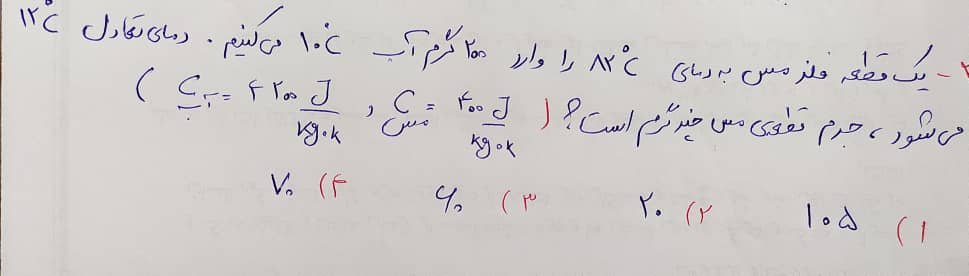 ۲- یک قطعه فلز مس به دمای ۸۲°C را وارد ۲۰۰ گرم آب ۱۰°C می‌کنیم. دمای تعادل ۱۲°C
می‌شود، جرم قطعه‌ی مس چند گرم است؟ ( C مس = ۴۰۰ J/kg.K , C آب = ۴۲۰۰ J/kg.K )
۱) ۱۰۵ ۲) ۲۰ ۳) ۶۰ ۴) ۷۰